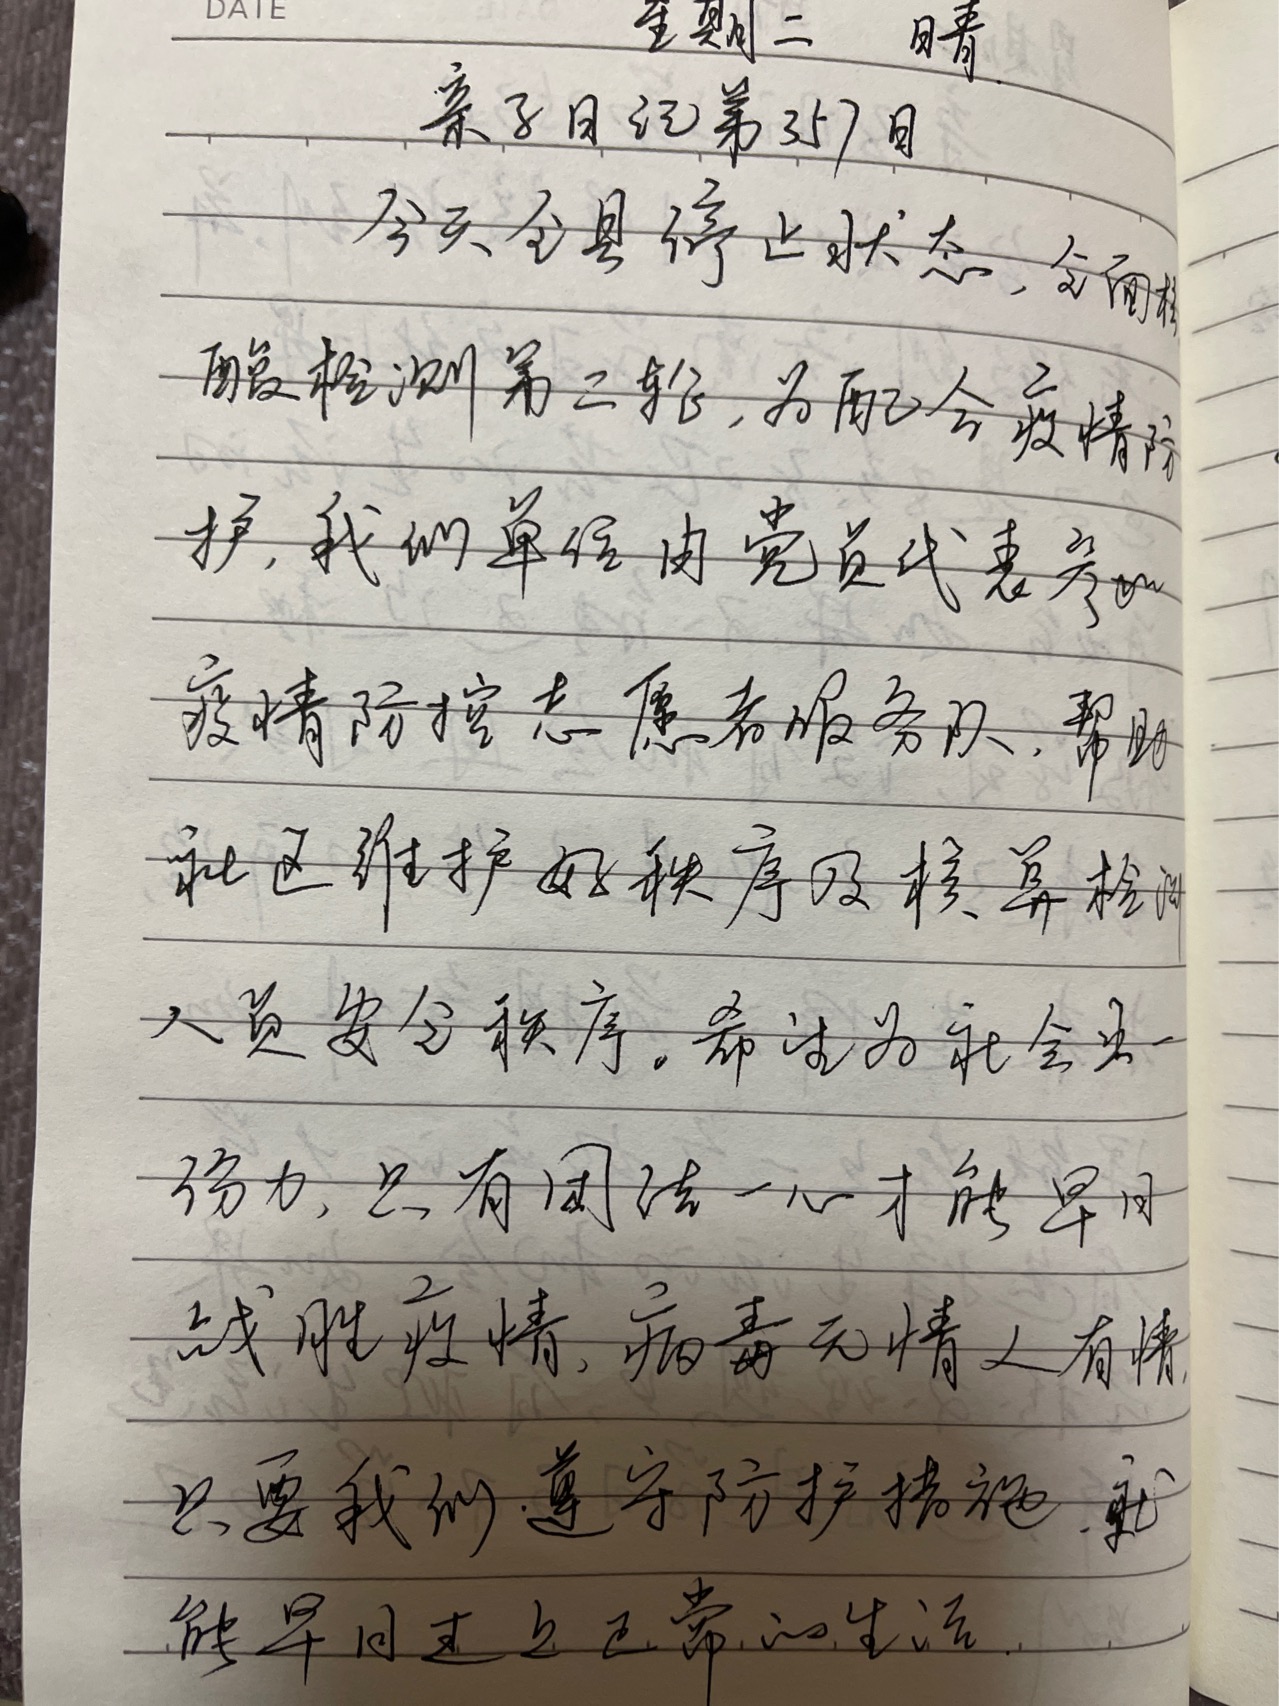 DATE
星期二 晴.
亲子日记第357日
今天全县停止状态,全面核
酸检测第二轮,为配合疫情防
护,我们单位由党员代表参加
疫情防控志愿者服务队,帮助
社区维护好秩序及核算检测
人员安全秩序。希望为社会出一
份力,只有团结一心才能早日
战胜疫情,病毒无情人有情,
只要我们遵守防护措施,就
能早日过上正常的生活.